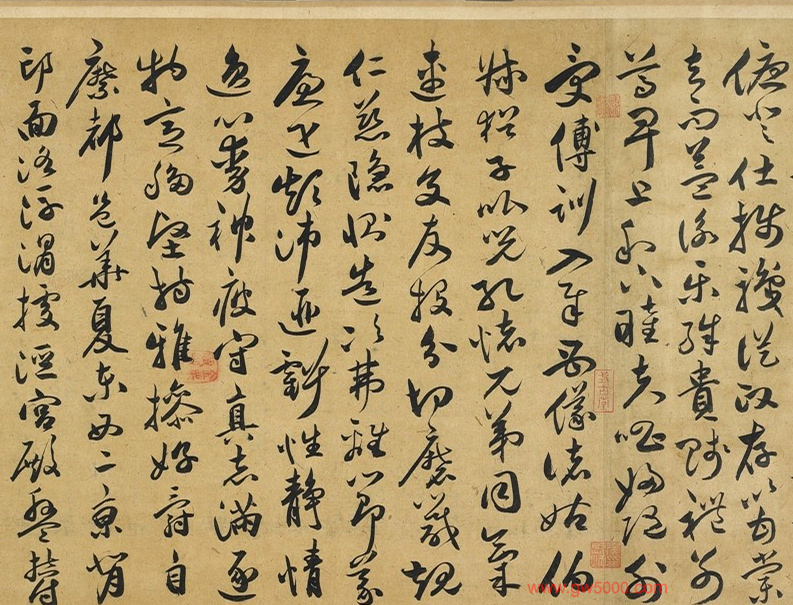 優登仕攝職從政存以甘棠
去而益詠樂殊貴賤禮別
尊卑上和下睦夫唱婦隨外
受傅訓入奉母儀諸姑伯
叔猶子比兒孔懷兄弟同氣
連枝交友投分切磨箴規
仁慈隱惻造次弗離節義
廉退顛沛匪虧性靜情
逸心動神疲守真志滿逐
物意移堅持雅操好爵自
縻都邑華夏東西二京背
邙面洛浮渭據涇宮殿盤鬱
www.gw5000.com